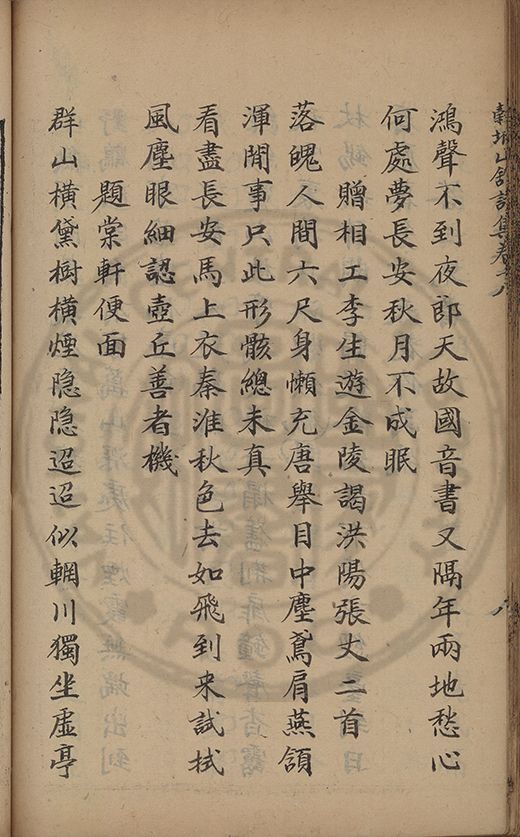 穀城山館詩集卷十八
八
鴻聲不到夜郎天故國音書又隔年兩地愁心
何處夢長安秋月不成眠
贈相工李生遊金陵謁洪陽張丈二首
落魄人間六尺身懶充唐舉目中塵鳶肩燕頷
渾閒事只此形骸總未真
看盡長安馬上衣秦淮秋色去如飛到来試拭
風塵眼細認壺丘善者機
題棠軒便面
群山橫黛樹橫煙隐隐迢迢似輞川獨坐虛亭